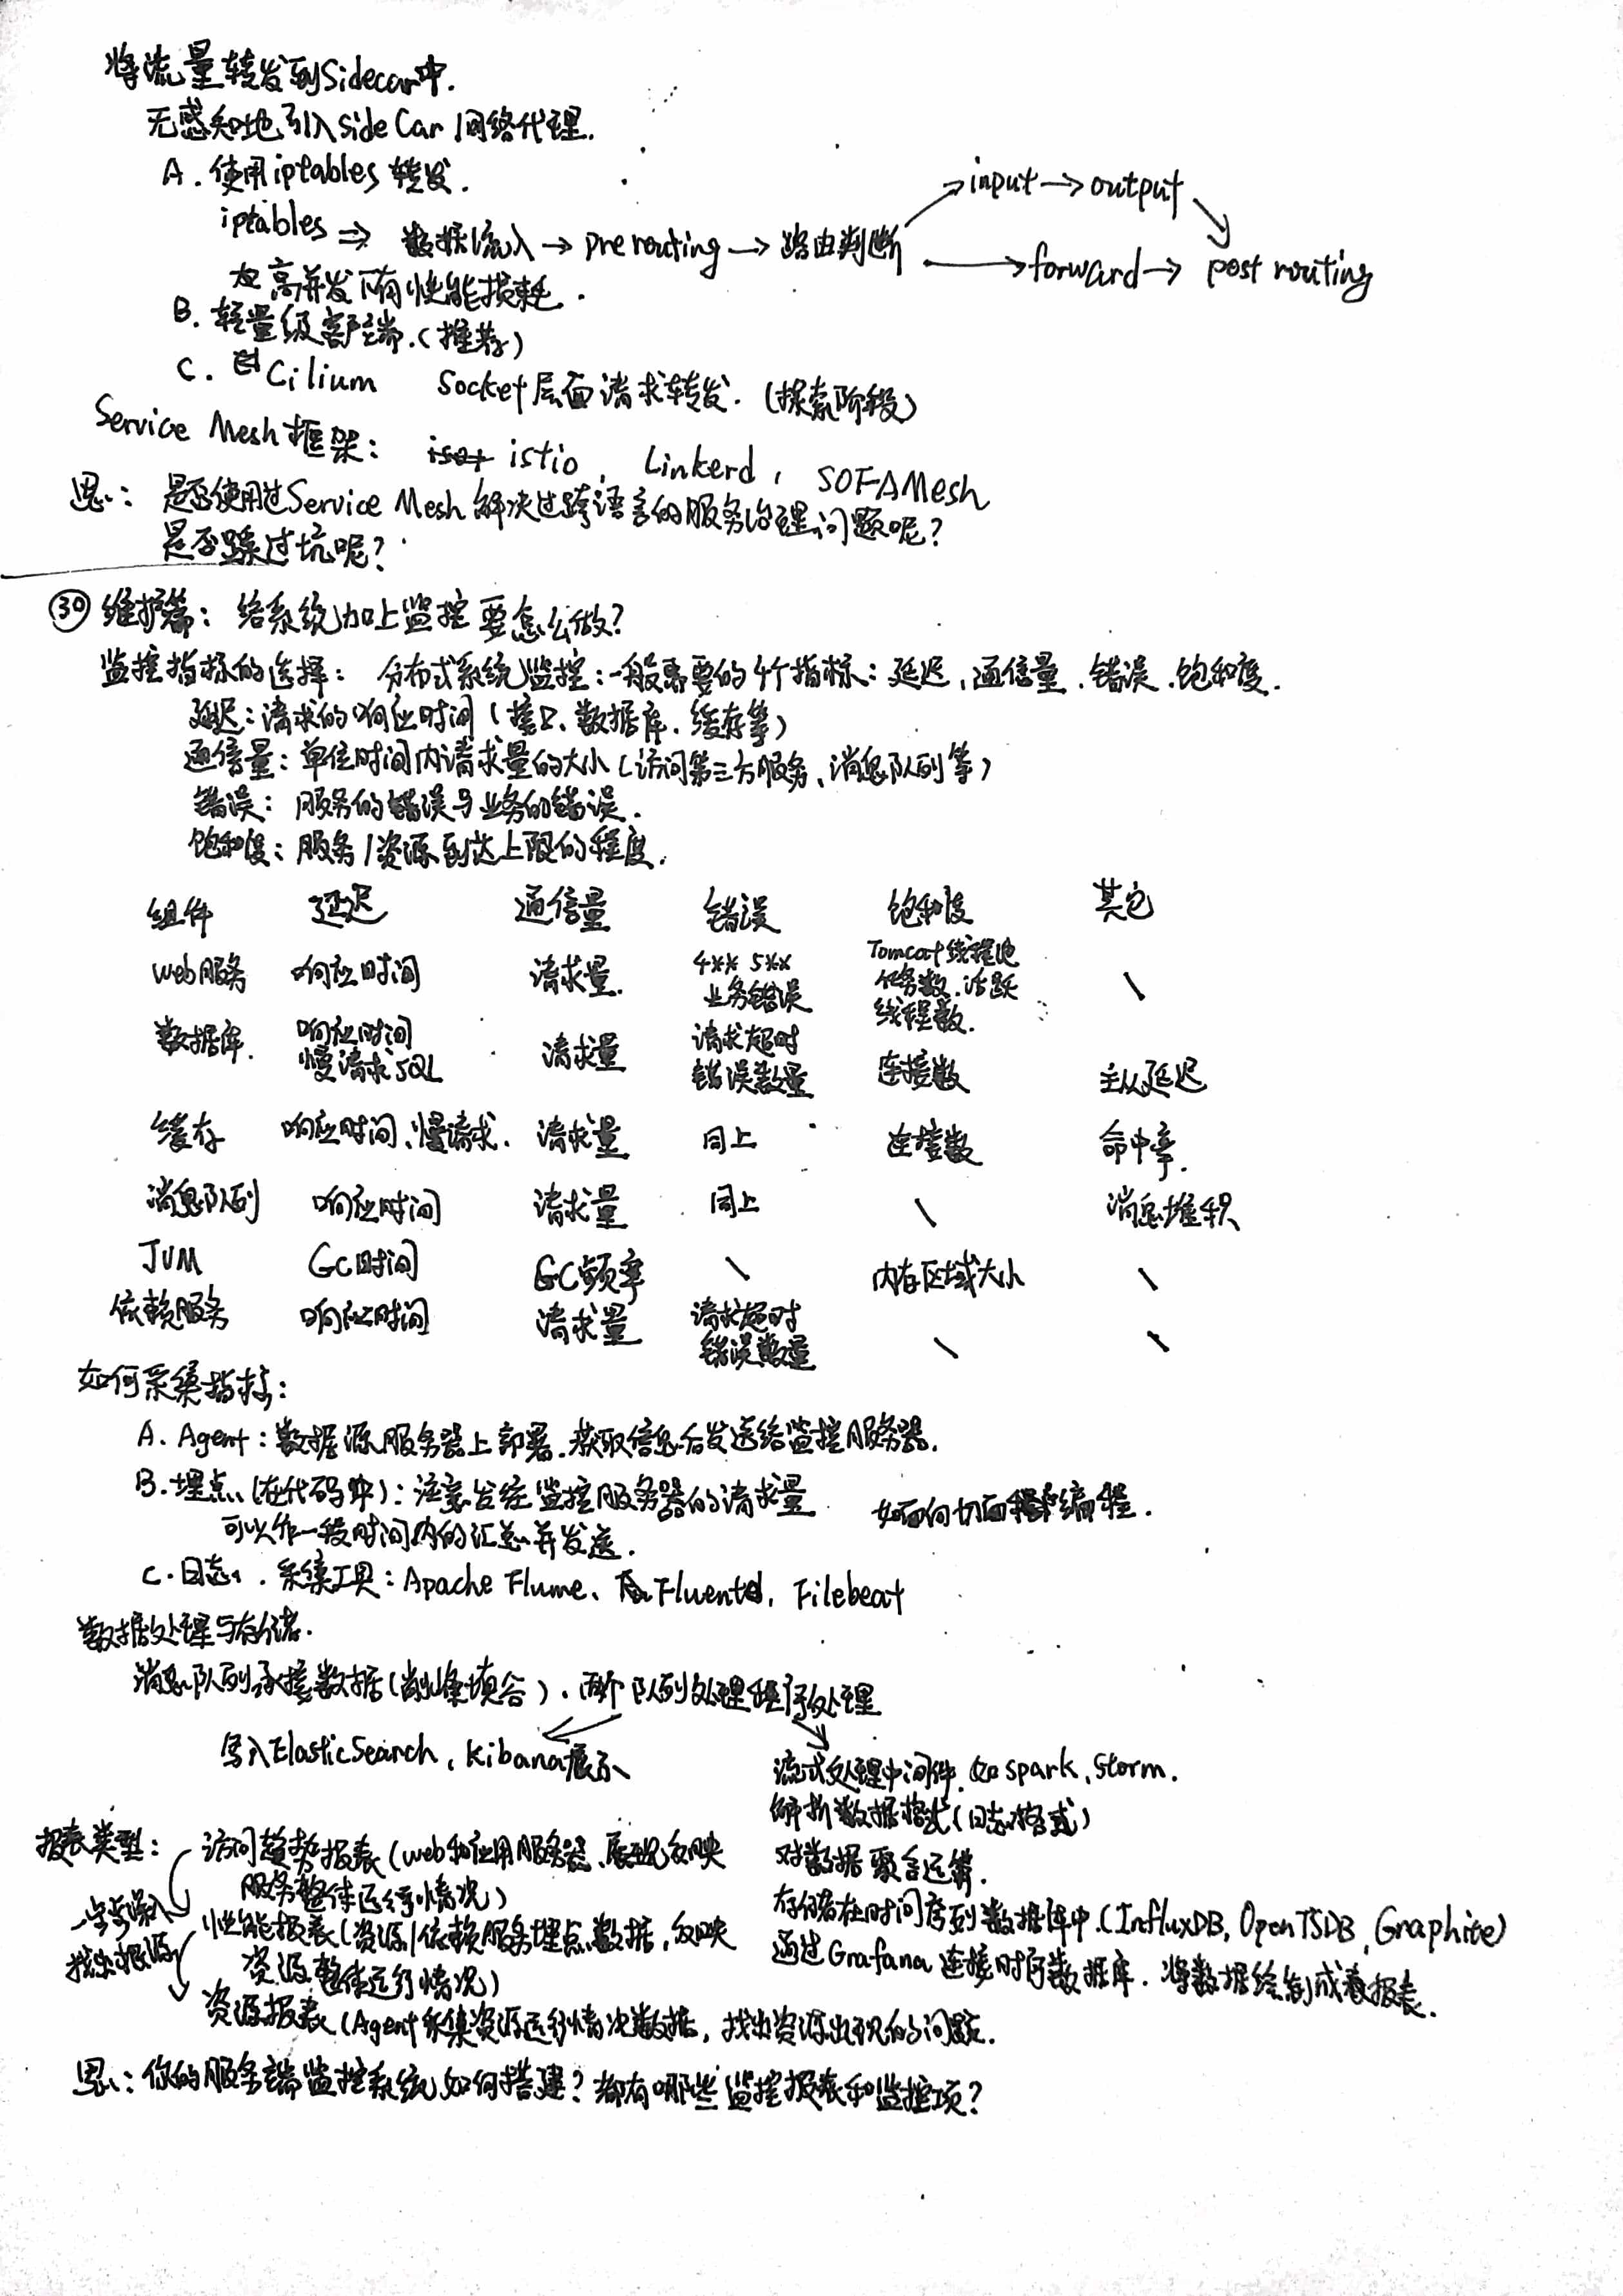 将流量转发到Sidecar中.
无感知地引入sideCar/网络代理.
A.使用iptables转发.
iptables ⇒ 数据流入→prerouting→路由判断 →input→output↘
→forward→ post routing
在高并发下有性能损耗.
B.轻量级客户端.(推荐)
C. Cilium Socket层面请求转发.(探索阶段)
Service Mesh框架: istio, Linkerd, SOFAMesh
思: 是否使用过Service Mesh解决过跨语言的服务治理问题呢?
是否踩过坑呢?
㉚维护篇: 给系统加上监控要怎么做?
监控指标的选择: 分布式系统监控:一般需要的4个指标:延迟,通信量.错误.饱和度.
延迟:请求的响应时间(接口、数据库.缓存等)
通信量:单位时间内请求量的大小(访问第三方服务、消息队列等)
错误: 服务的错误与业务的错误.
饱和度: 服务/资源到达上限的程度.
组件 延迟 通信量 错误 饱和度 其它
web服务 响应时间 请求量. 4** 5** 业务错误 Tomcat线程池任务数.活跃线程数. \
数据库. 响应时间 慢请求SQL 请求量 请求超时 错误数量 连接数 主从延迟
缓存 响应时间、慢请求. 请求量 同上 连接数 命中率.
消息队列 响应时间 请求量 同上 \ 消息堆积
JVM GC时间 GC频率 \ 内存区域大小 \
依赖服务 响应时间 请求量 请求超时 错误数量 \ \
如何采集指标:
A. Agent:数据源服务器上部署.获取信息后发送给监控服务器.
B.埋点(在代码中):注意发往监控服务器的请求量 如面向切面编程.
可以作一段时间内的汇总并发送.
C.日志.采集工具: Apache Flume、Fluentd, Filebeat
数据处理与存储.
消息队列承接数据(削峰填谷).两个队列处理程序处理
写入ElasticSearch, Kibana展示
流式处理中间件.如spark,Storm.
解析数据格式(日志格式)
对数据聚合运算.
存储在时间序列数据库中(InfluxDB,OpenTSDB,Graphite)
通过Grafana连接时序数据库.将数据绘制成报表.
报表类型: 访问趋势报表(web和应用服务器、展现反映
服务整体运行情况)
一步步深入
找出根源
性能报表(资源/依赖服务埋点数据,反映
资源整体运行情况)
资源报表(Agent采集资源运行情况数据,找出资源出现的问题.
思:你的服务端监控系统如何搭建?都有哪些监控报表和监控项?